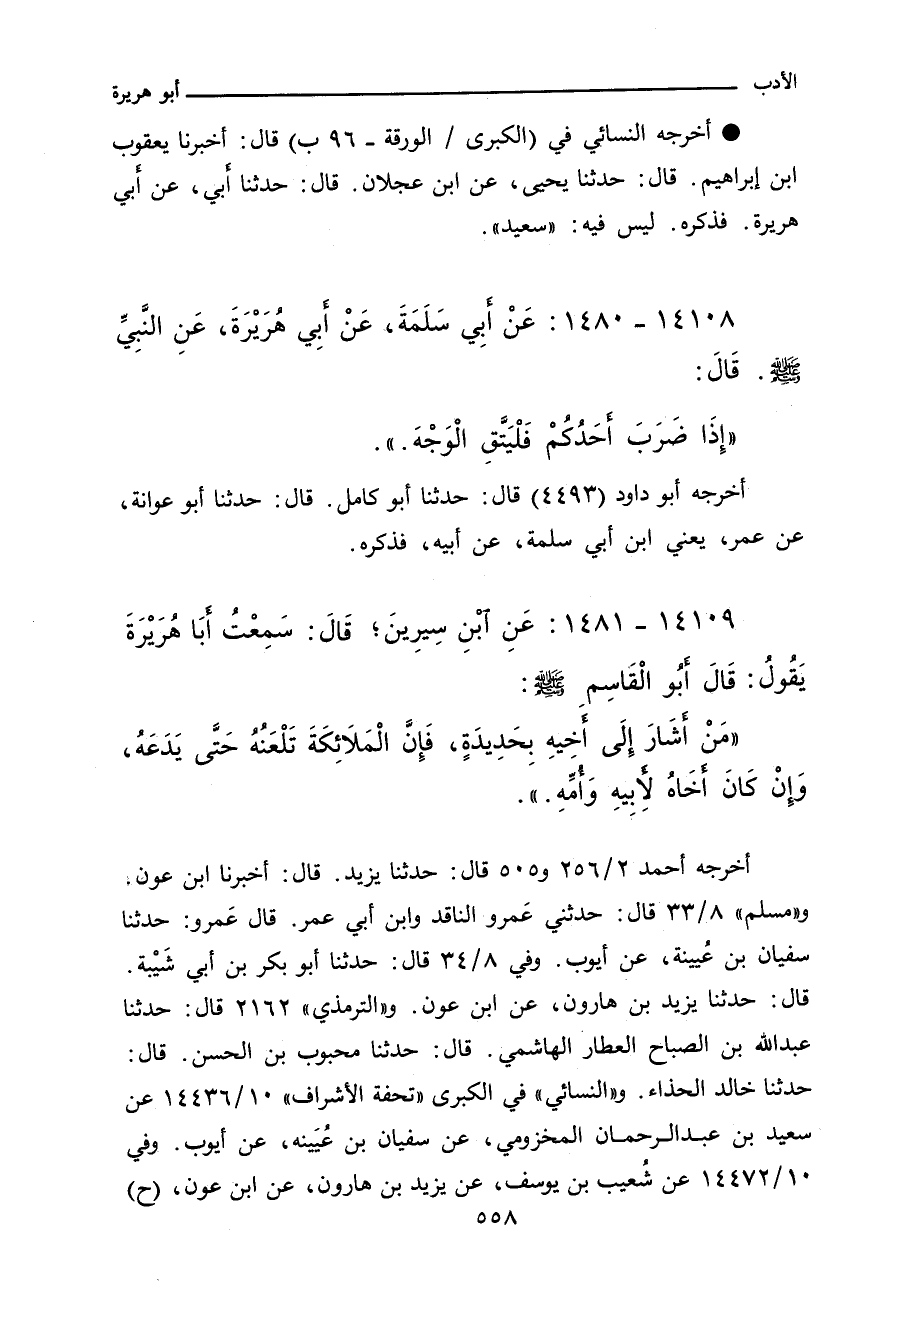 الأدب ــــــــــــــــــــ أبو هريرة
● أخرجه النسائي في (الكبرى / الورقة - ٩٦ ب) قال: أخبرنا يعقوب
ابن إبراهيم. قال: حدثنا يحيى، عن ابن عجلان. قال: حدثنا أبي، عن أبي
هريرة. فذكره. ليس فيه: «سعيد».
١٤١٠٨ - ١٤٨٠: عَنْ أَبِي سَلَمَةَ، عَنْ أَبِي هُرَيْرَةَ، عَنِ النَّبِيِّ
ﷺ. قَالَ:
«إِذَا ضَرَبَ أَحَدُكُمْ فَلْيَتَّقِ الْوَجْهَ.».
أخرجه أبو داود (٤٤٩٣) قال: حدثنا أبو كامل. قال: حدثنا أبو عوانة،
عن عمر، يعني ابن أبي سلمة، عن أبيه، فذكره.
١٤١٠٩ - ١٤٨١: عَنِ ٱبْنِ سِيرِينَ؛ قَالَ: سَمِعْتُ أَبَا هُرَيْرَةَ
يَقُولُ: قَالَ أَبُو الْقَاسِمِ ﷺ:
«مَنْ أَشَارَ إِلَى أَخِيهِ بِحَدِيدَةٍ، فَإِنَّ الْمَلَائِكَةَ تَلْعَنُهُ حَتَّى يَدَعَهُ،
وَإِنْ كَانَ أَخَاهُ لِأَبِيهِ وَأُمِّهِ.».
أخرجه أحمد ٢/٢٥٦ و٥٠٥ قال: حدثنا يزيد. قال: أخبرنا ابن عون.
و«مسلم» ٨/٣٣ قال: حدثني عَمرو الناقد وابن أبي عمر. قال عَمرو: حدثنا
سفيان بن عُيينة، عن أيوب. وفي ٨/٣٤ قال: حدثنا أبو بكر بن أبي شَيْبة.
قال: حدثنا يزيد بن هارون، عن ابن عون. و«الترمذي» ٢١٦٢ قال: حدثنا
عبدالله بن الصباح العطار الهاشمي. قال: حدثنا محبوب بن الحسن. قال:
حدثنا خالد الحذاء. و«النسائي» في الكبرى «تحفة الأشراف» ١٠/١٤٤٣٦ عن
سعيد بن عبدالرحمان المخزومي، عن سفيان بن عُيَينه، عن أيوب. وفي
١٠/١٤٤٧٢ عن شُعيب بن يوسف، عن يزيد بن هارون، عن ابن عون، (ح)
٥٥٨